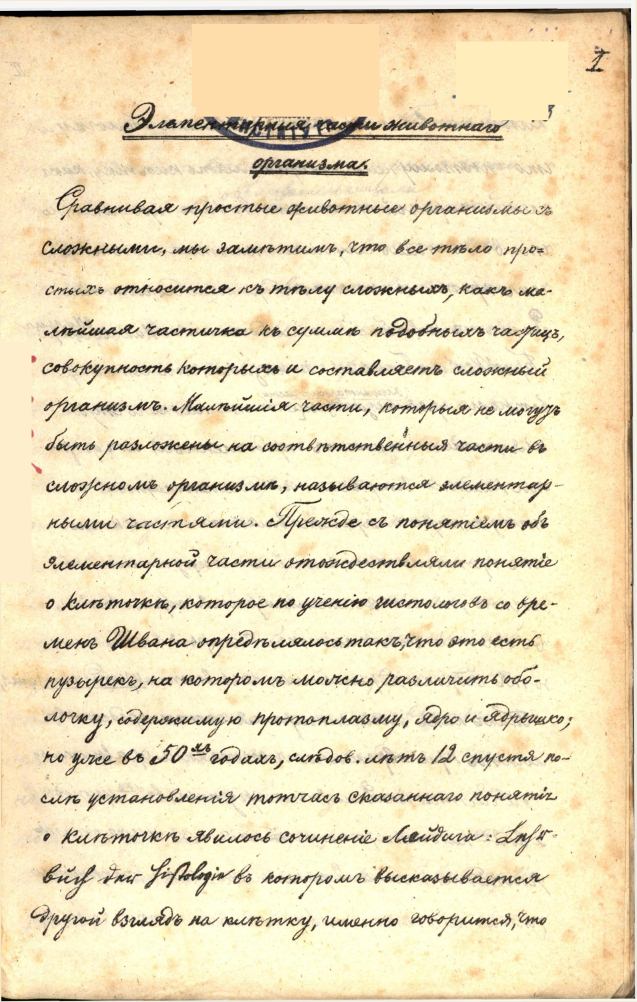 1
Элементарныя части животнаго
организма.
Сравнивая простые животные организмы съ
сложными, мы замѣтимъ, что все тѣло про=
стыхъ относится къ тѣлу сложныхъ, какъ ма-
лѣйшая частичка къ суммѣ подобныхъ частицъ,
совокупность которыхъ и составляетъ сложный
организмъ. Малѣйшія части, которыя не могутъ
быть разложены на соотвѣтственныя части въ
сложномъ организмѣ, называются элементар-
ными частями. Прежде съ понятіемъ объ
элементарной части отождествляли понятіе
о клѣточкѣ, которое по ученію гистологовъ со вре-
менъ Швана опредѣлялось такъ, что это есть
пузырекъ, на которомъ можно различить обо-
лочку, содержимую протоплазму, ядро и ядрышко;
но уже въ 50хъ годахъ, слѣдов. лѣтъ 12 спустя по-
слѣ установленія тотчасъ сказаннаго понятія
о клѣточкѣ явилось сочиненіе Лейдига: Lehr-
buch der Histologie въ которомъ высказывается
другой взглядъ на клѣтку, именно говорится, что